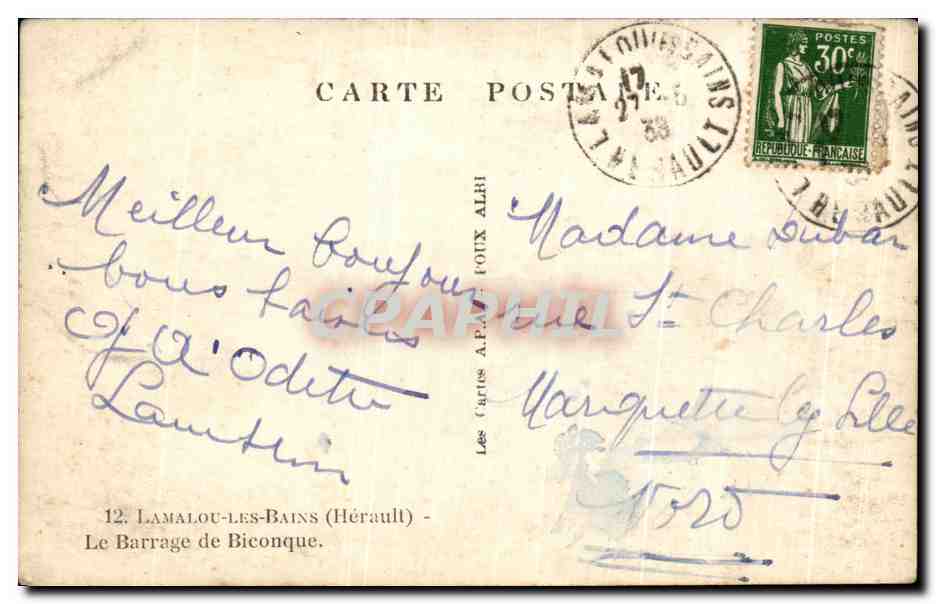 CARTE POSTALE
LAMALOU LES BAINS
17
27 - 5
38
HÉRAULT
POSTES
30c
REPUBLIQUE-FRANÇAISE
Meilleur bonjour
bons baisers
Odette
Les Cartes A.P.A. POUX ALBI
CPAPHIL
Madame Dubar
rue St Charles
Marquette lez Lille
Nord
12. LAMALOU-LES-BAINS (Hérault) -
Le Barrage de Biconque.